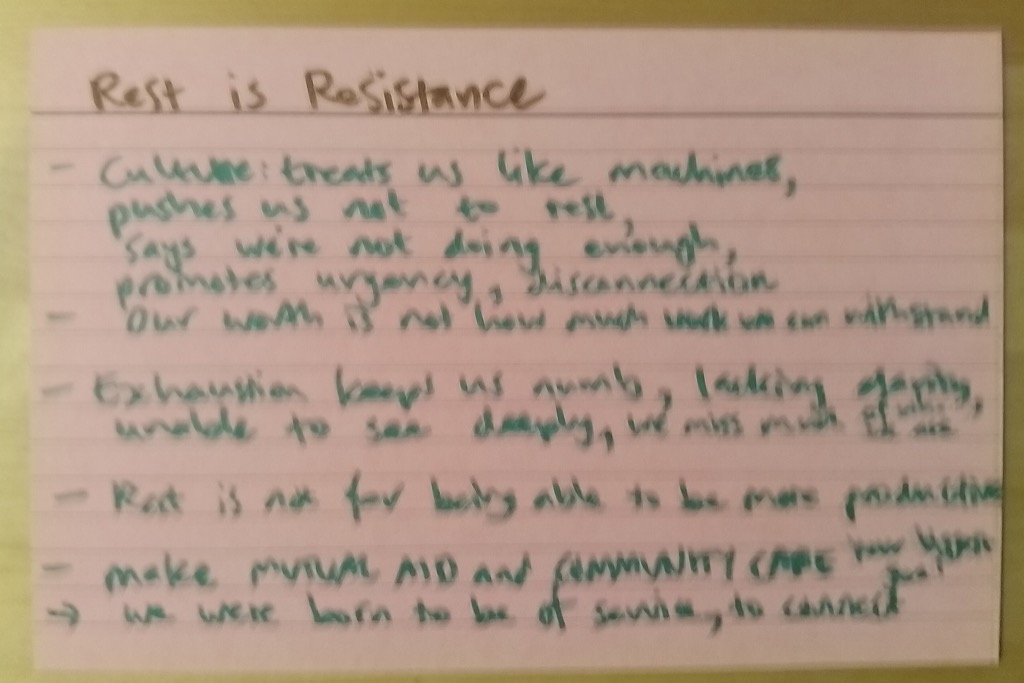 Rest is Resistance
- Culture: treats us like machines,
pushes us not to rest,
says we're not doing enough,
promotes urgency, disconnection
- Our worth is not how much work we can withstand
- Exhaustion keeps us numb, lacking
unable to see deeply, we miss much
- Rest is not for being able to be more productive
- make MUTUAL AID and COMMUNITY CARE your
→ we were born to be of service, to connect